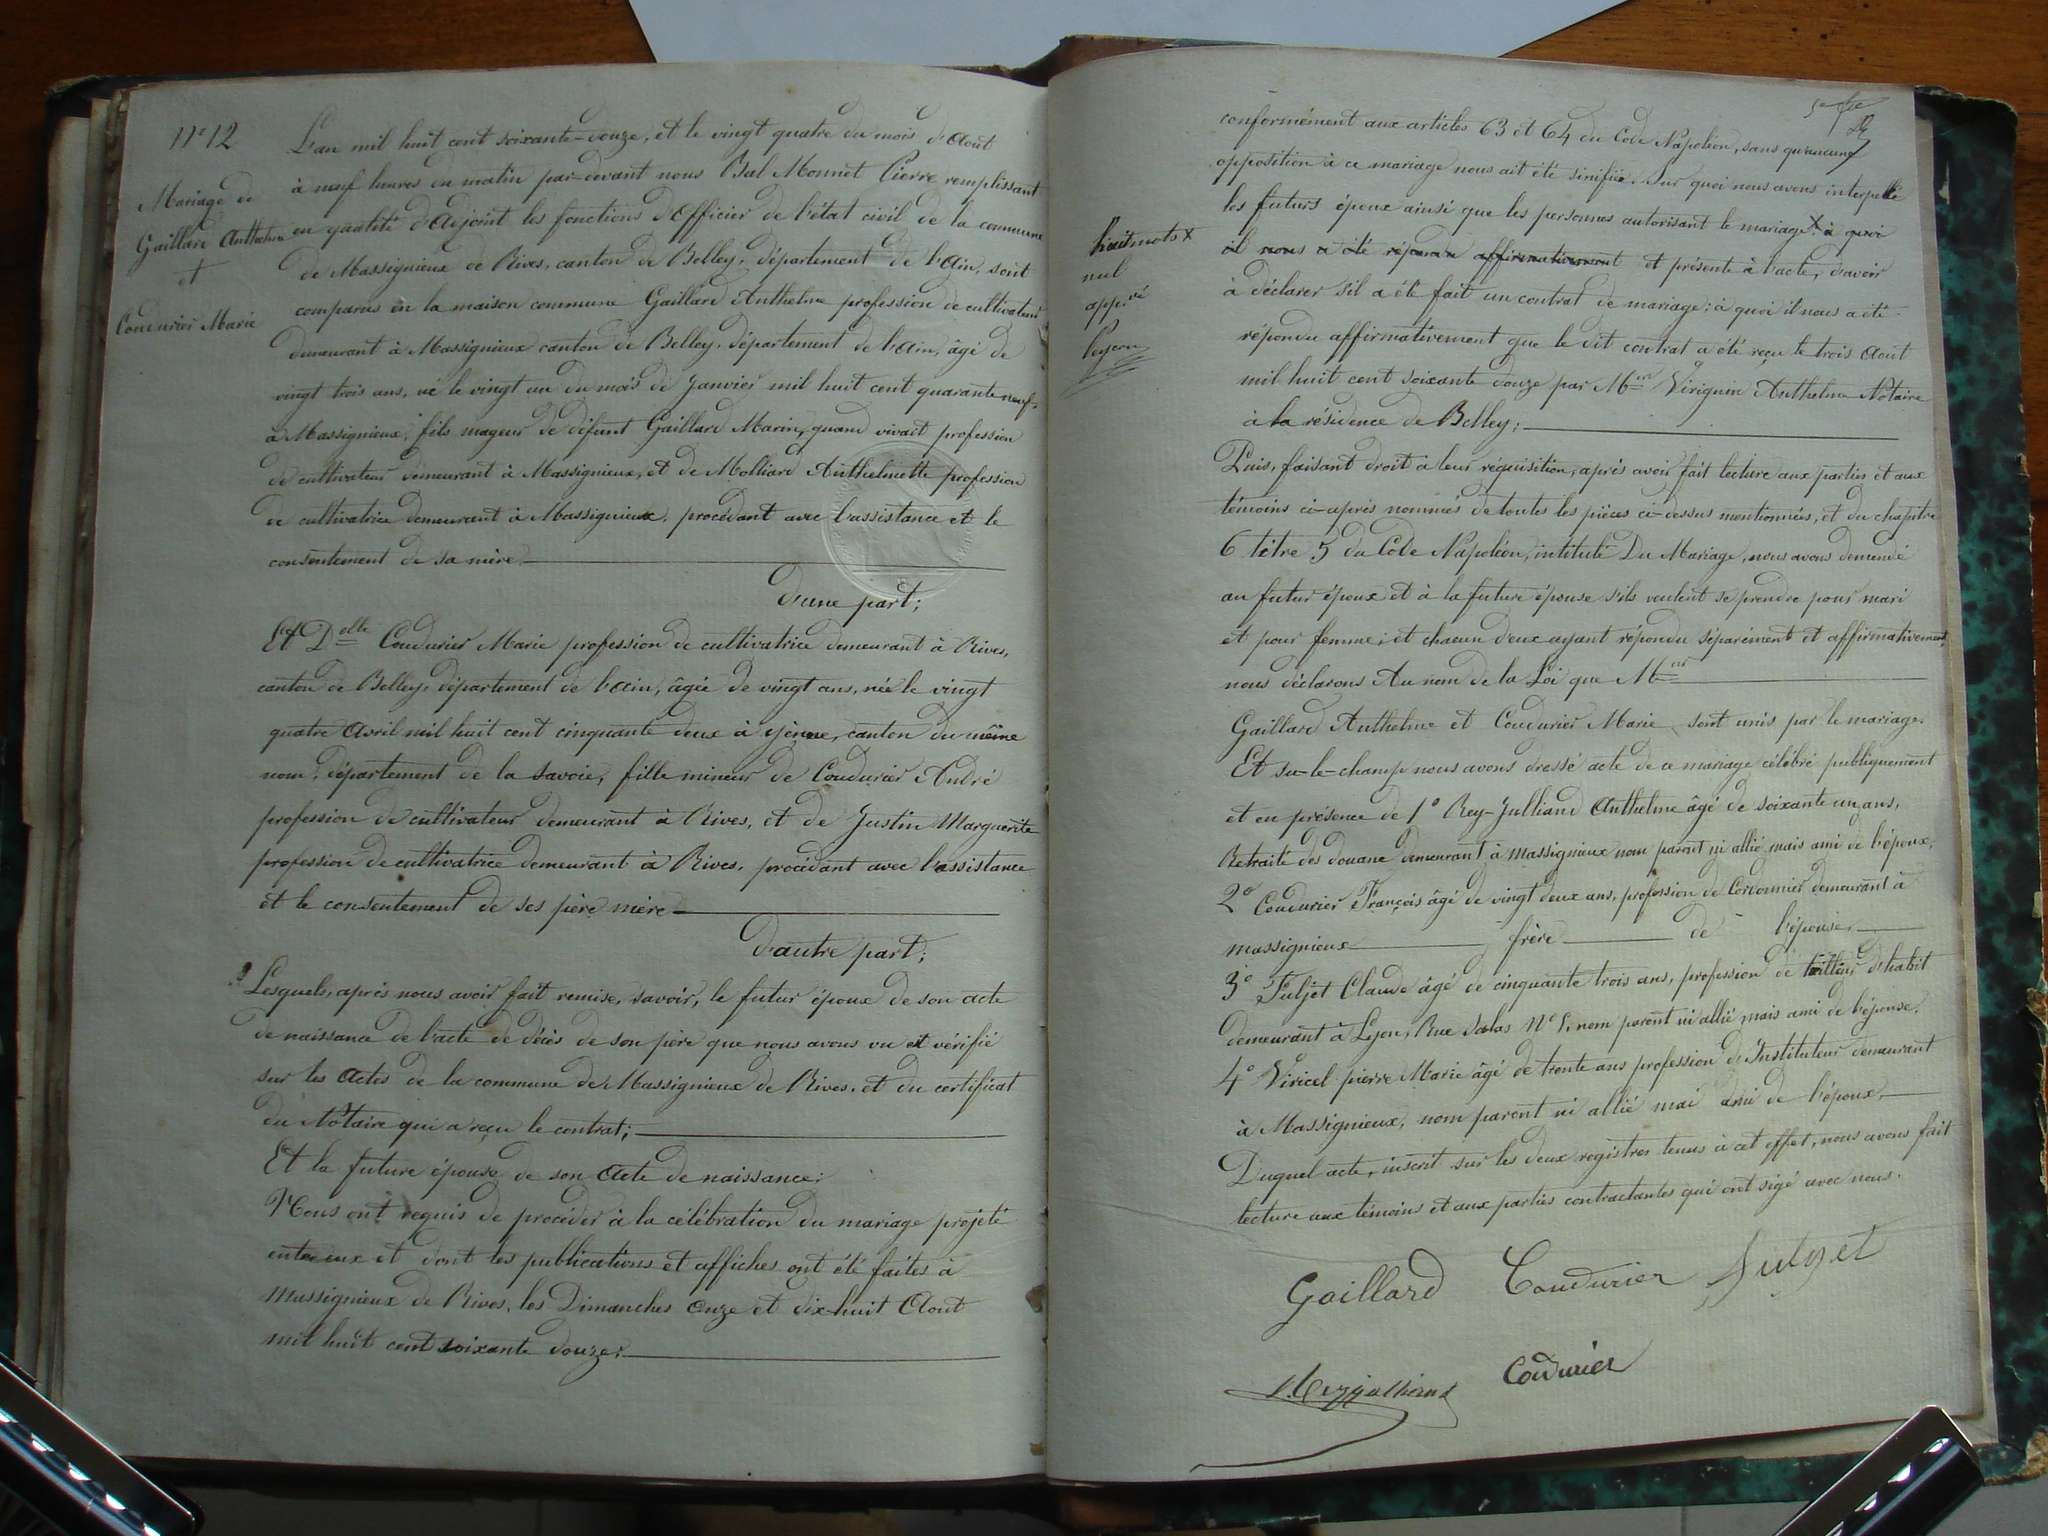 N° 12
Mariage de
Gaillard Anthelme
et
Coudurier Marie
L'an mil huit cent soixante-douze, et le vingt quatre du mois d'Aout
à neuf heures du matin par-devant nous Bal Monnet Pierre remplissant
en qualité d'Adjoint les fonctions d'Officier de l'état civil de la commune
de Massignieux de Rives, canton de Belley, département de l'Ain, sont
comparus en la maison commune Gaillard Anthelme profession de cultivateur
demeurant à Massignieux canton de Belley, département de l'ain, âgé de
vingt trois ans, né le vingt un du mois de Janvier mil huit cent quarante neuf,
à Massignieux, fils mageur de défunt Gaillard Marin, quand vivait profession
de cultivateur demeurant à Massignieux, et de Molliard Anthelmette profession
de cultivatrice demeurant à Massignieux, procédant avec l'assistance et le
consentement de sa mère
D'une part;
Et Delle Coudurier Marie profession de cultivatrice demeurant à Rives,
canton de Belley, département de l'ain, âgée de vingt ans, née le vingt
quatre Avril mil huit cent cinquante deux à yenne, canton du même
nom, département de la Savoie, fille mineur de Coudurier André
profession de cultivateur demeurant à Rives, et de Justin Marguerite
profession de cultivatrice demeurant à Rives, procédant avec l'assistance
et le consentement de ses père mère
D'autre part;
Lesquels, après nous avoir fait remise, savoir, le futur époux de son acte
de naissance de l'acte de décès de son père que nous avons vu et vérifié
sur les Actes de la commune de Massignieux de Rives, et du certificat
du Notaire qui a reçu le contrat;
Et la future épouse de son Acte de naissance;
Nous ont requis de procéder à la célébration du mariage projeté
entre eux et dont les publications et affiches ont été faites à
Massignieux de Rives, les Dimanches onze et dix-huit Aout
mil huit cent soixante douze;
conformément aux articles 63 et 64 du Code Napoléon, sans qu'aucune
opposition à ce mariage nous ait été sinifiée. Sur quoi nous avons interpellé
les futurs époux ainsi que les personnes autorisant le mariage X à quoi
il nous a été répondu affirmativement et présente à l'acte, d'avoir
à déclarer s'il a été fait un contrat de mariage; à quoi il nous a été
répondu affirmativement que le dit contrat a été reçu le trois Aout
mil huit cent soixante douze par Mtre Viriguin Anthelme Notaire
à la résidence de Belley;
huit mots X
nul
app.vé
Puis, faisant droit à leur réquisition, après avoir fait lecture aux parties et aux
témoins ci-après nommés de toutes les pièces ci-dessus mentionnées, et du chapitre
6 titre 5 du Code Napoléon, intitulé Du Mariage, nous avons demandé
au futur époux et à la future épouse s'ils veulent se prendre pour mari
et pour femme; et chacun d'eux ayant répondu séparément et affirmativement,
nous déclarons Au nom de la Loi que Mer
Gaillard Anthelme et Coudurier Marie sont unis par le mariage.
Et su-le-champ nous avons dressé acte de ce mariage célébré publiquement
et en présence de 1° Rey-Julliand Anthelme âgé de soixante un ans,
Retraité des douane demeurant à massignieux nom parent ni allié mais ami de l'époux,
2° Coudurier François âgé de vingt deux ans, profession de Cordonnier demeurant à
massignieux frère de l'épouse,
3° Fuljet Claude âgé de cinquante trois ans, profession de tailleur d'habit
demeurant à Lyon, Rue Salas N° 5, nom parent ni allié mais ami de l'épouse.
4° Viricel pierre Marie âgé de trente ans profession d'Instituteur demeurant
à Massignieux, nom parent ni allié mai ami de l'époux,
Duquel acte, inscrit sur les deux registres tenus à cet effet, nous avons fait
lecture aux témoins et aux parties contractantes qui ont sigé avec nous.
Gaillard Coudurier Fulget
Reyjulliand Coudurier